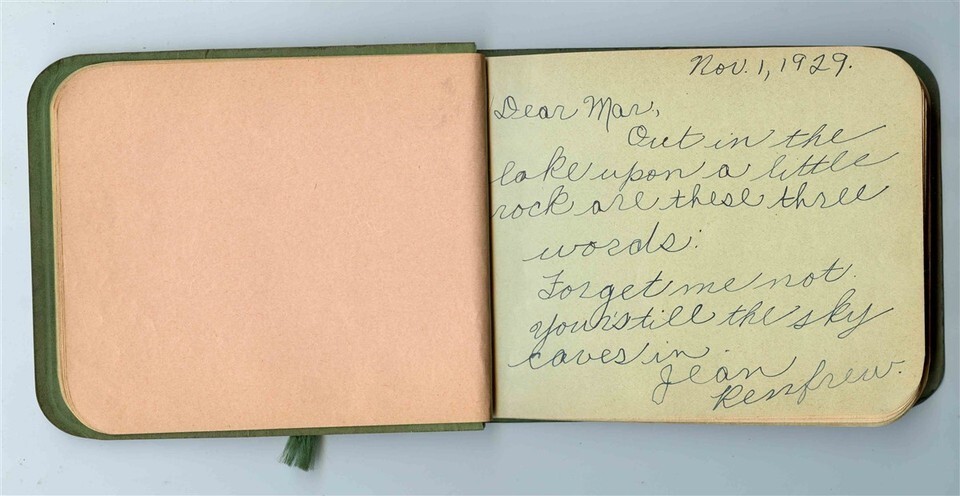 Nov. 1, 1929.
Dear Mar,
Out in the
lake upon a little
rock are these three
words:
Forget me not.
Yours till the sky
caves in.
Jean
Renfrew.